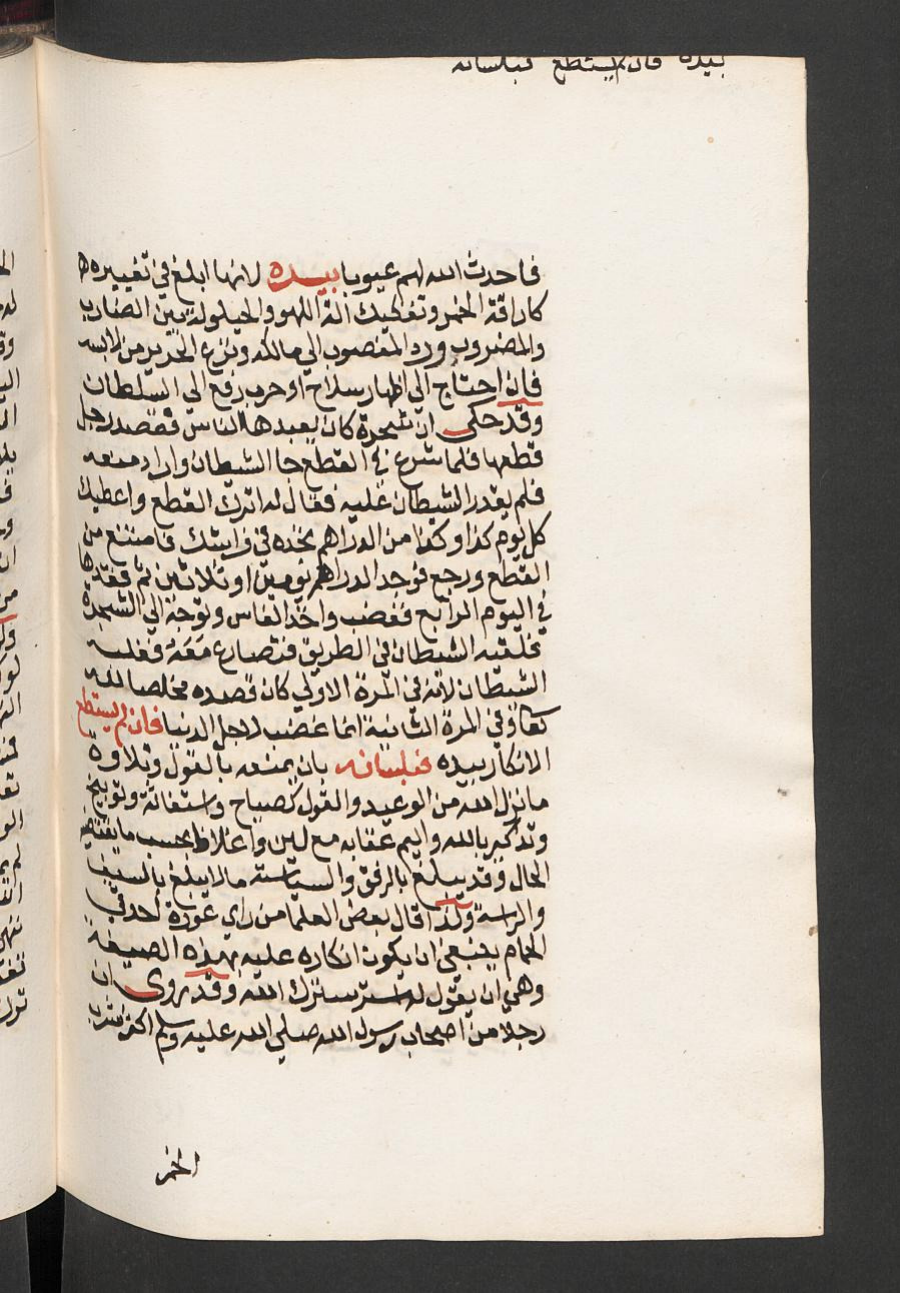 بيده فان لم يستطع فبلسانه
فاحدث الله لهم عيوبا بيده لانها ابلغ في تغييره
كاراقة الخمر وتفكيك الة اللهو والحيلولة بين الضارب
والمضروب ورد المغصوب الي مالكه ونزع الحرير من لابسه
فان احتاج الي اظهار سلاح او حرب رفع الي السلطان
وقد حكي ان شجرة كان يعبدها الناس فقصد رجل
قطعها فلما شرع في القطع جا الشيطان واراد منعه
فلم يقدر الشيطان عليه فقال له اترك القطع واعطيك
كل يوم كذا وكذا من الدراهم تجده في فراشك فامتنع من
القطع ورجع فوجد الدراهم يومين او ثلاثين ثم فقدها
في اليوم الرابع فغضب واخذ الفاس وتوجه الي الشجرة
فلقيه الشيطان في الطريق فتصارع معه فغلبه
الشيطان لانه في المرة الاولي كان قصده مخلصا لله
تعا وفي المرة الثانية انما غضب لاجل الدنيا فان لم يستطع
الانكار بيده فبلسانه بان يمنعه بالقول وتلاوة
ما نزل الله من الوعيد والقول كصياح واستغاثة وتوبيخ
وتذكير بالله واليم عقابه مع لين واغلاظ بحسب ما يقتضيه
الحال وقد يبلغ بالرفق والسياسة ما لا يبلغ بالسيف
والرياسة ولذا قال بعض العلما من راي عورة احد في
الحمام ينبغي ان يكون انكاره عليه بهذه الصيغة
وهي ان يقول له استر سترك الله وقد روي ان
رجلا من اصحاب رسول الله صلي الله عليه وسلم اكثر شرب
الخمر